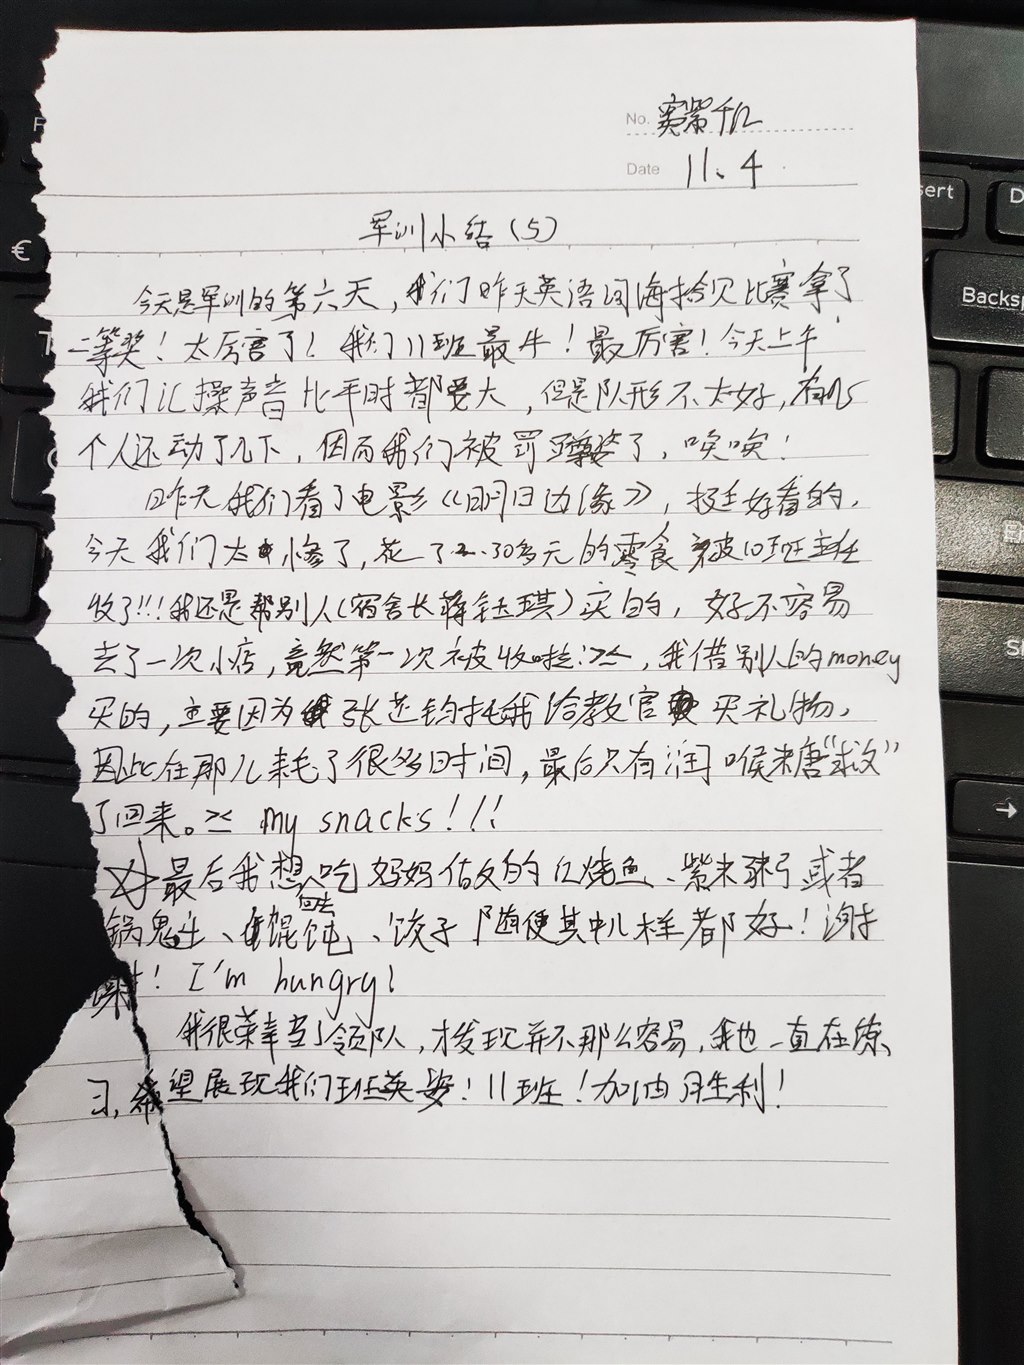 No. 窦紫千
Date 11、4
军训小结(5)
今天是军训的第六天,我们昨天英语词海拾贝比赛拿了
二等奖!太厉害了!我们11班最牛!最厉害!今天上午
我们汇操声音比平时都要大,但是队形不太好,有几
个人还动了几下,因而我们被罚蹲姿了,唉唉!
昨天我们看了电影《明日边缘》,挺好看的,
今天我们太惨了,花了30多元的零食被10班班主任
收了!!!我还是帮别人(宿舍长蒋钰琪)买的,好不容易
去了一次小店,竟然第一次被收啦:><,我借别人的money
买的,主要因为张芷钧托我给教官买礼物,
因此在那儿耗了很多时间,最后只有润喉糖“救”
了回来。>< my snacks!!!
☆最后我想回去吃妈妈做的红烧鱼、紫米粥或者
锅盔、馄饨、饺子随便其中几样都好!谢
谢!I'm hungry!
我很荣幸当了领队,才发现并不那么容易,我也一直在练
习,希望展现我们班英姿!11班!加油胜利!
€
sert
D
Backsp
S
→